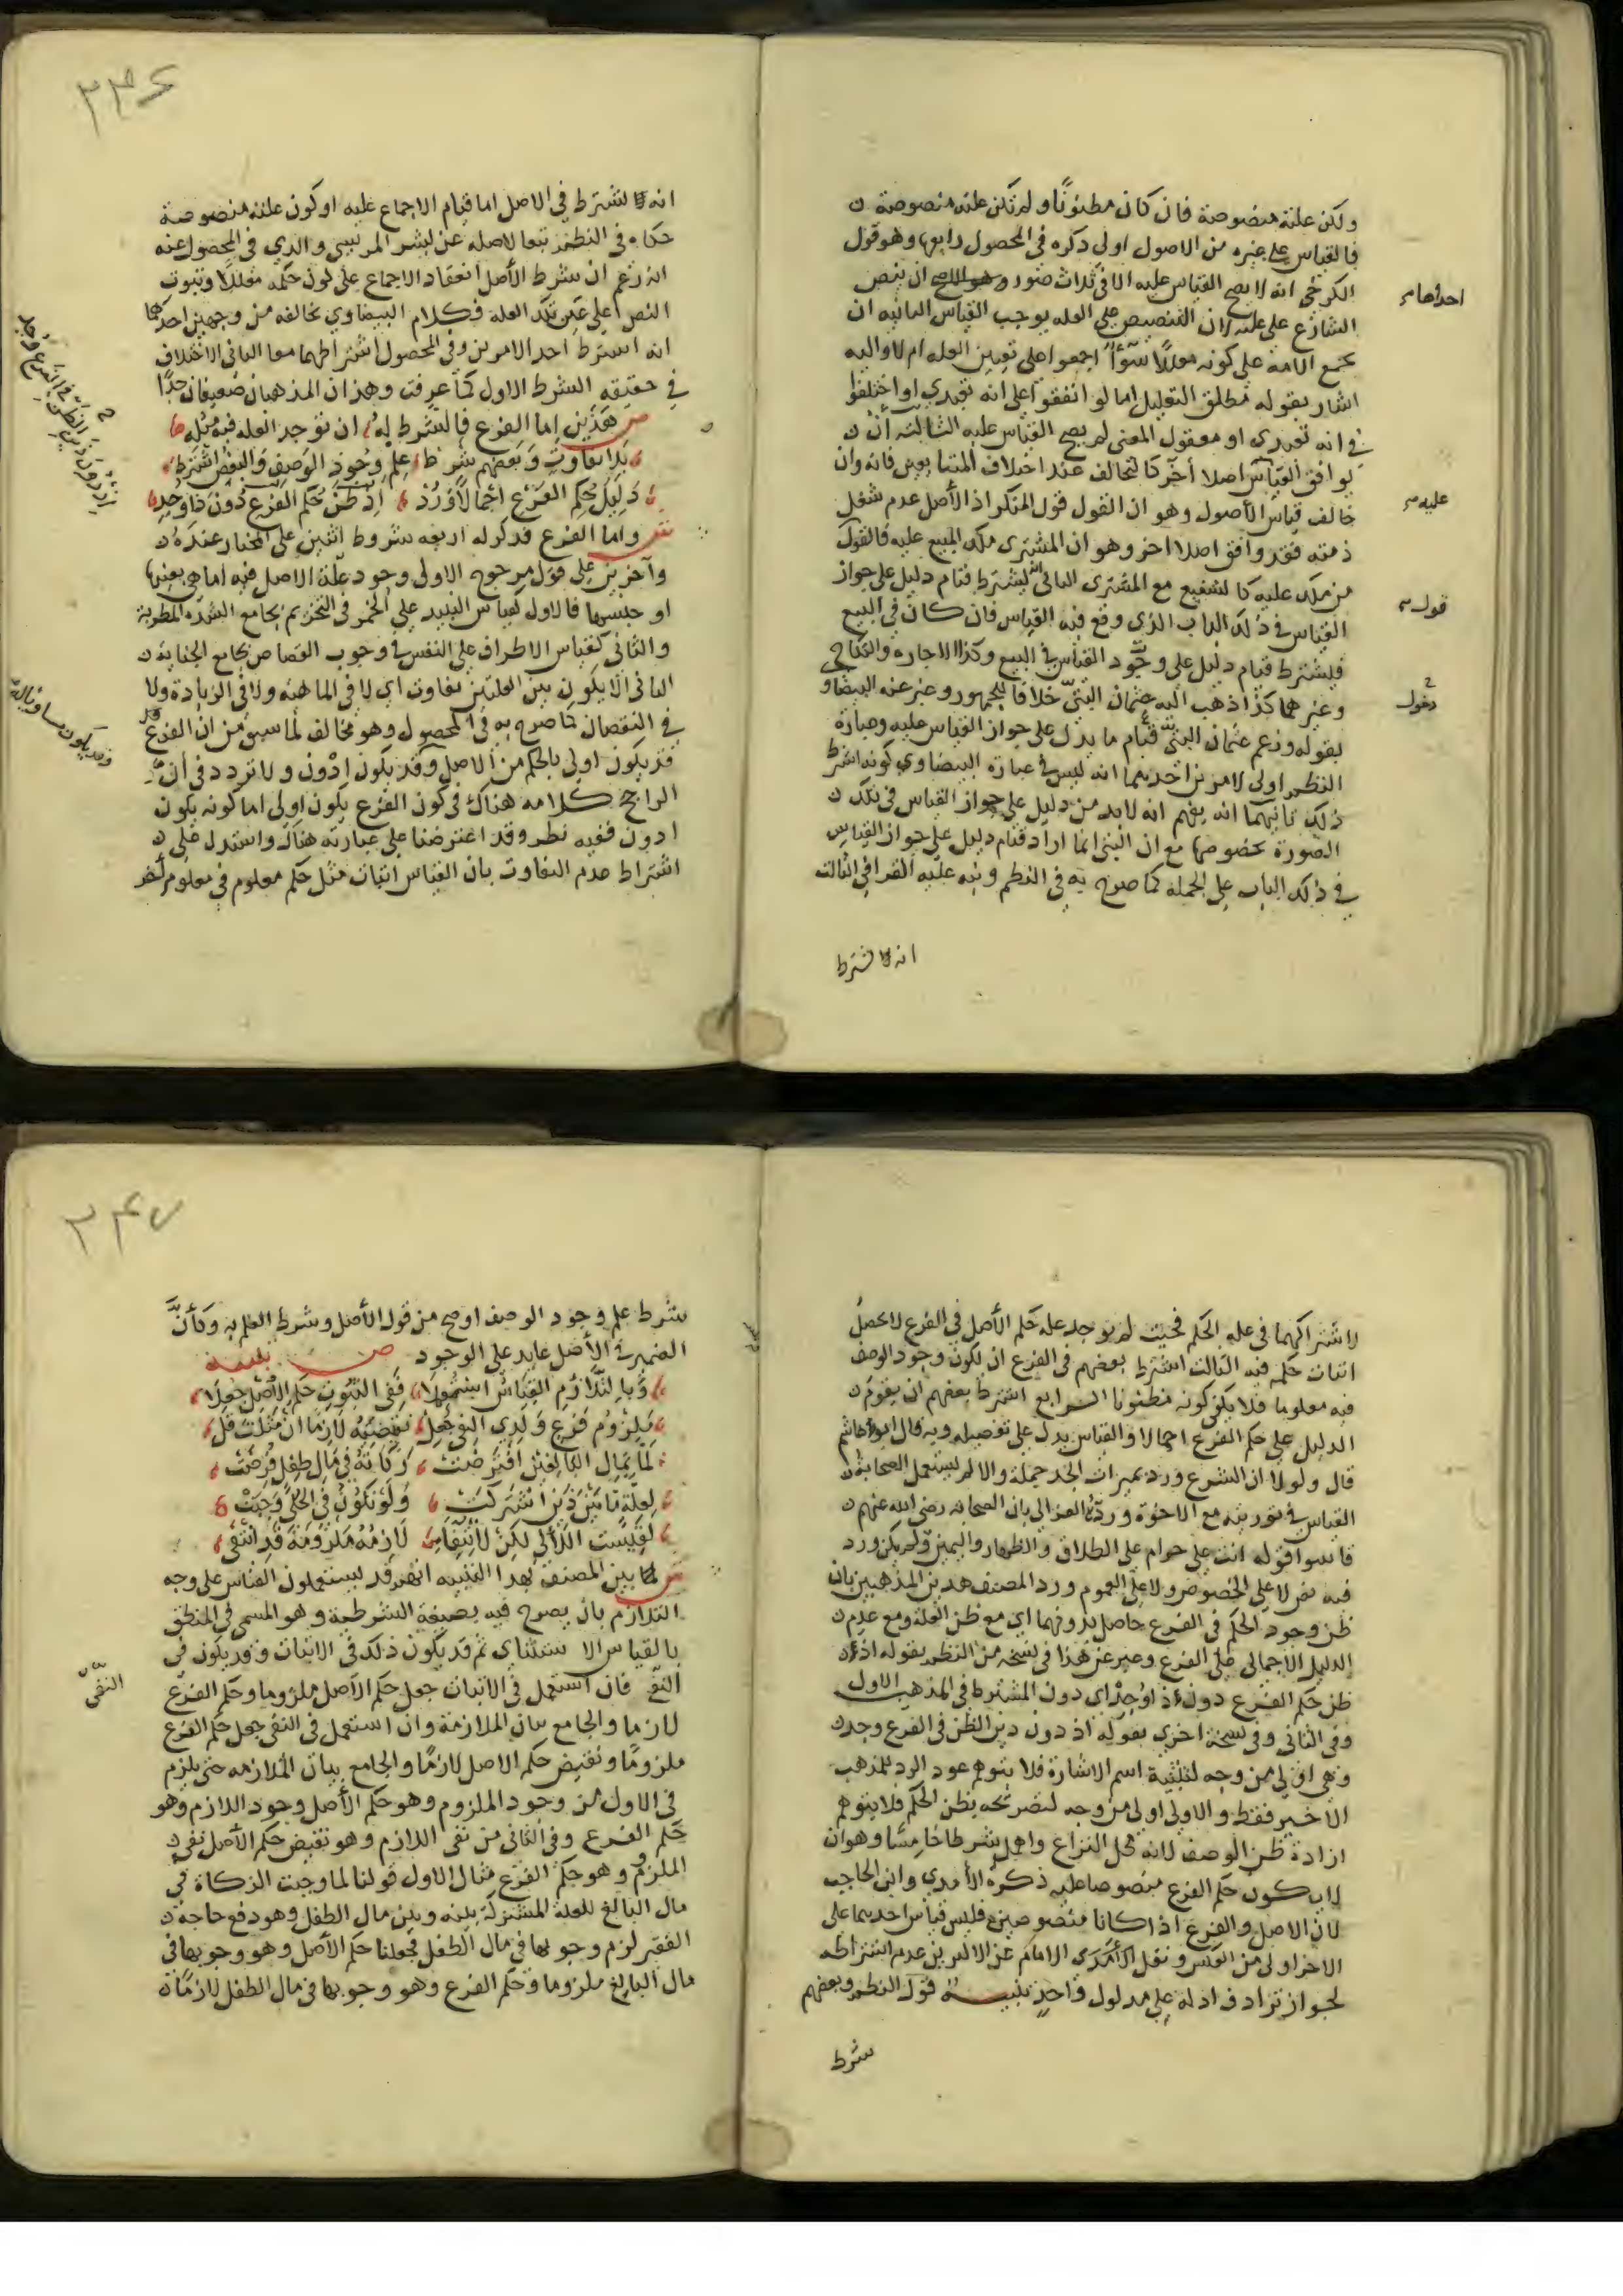 ولكن علته منصوصة فان كان مظنونًا ولم تكن علته منصوصة
فالقياس على غيره من الاصول اولى ذكره في المحصول رابعها وهو قول
الكرخي انه لا يصح القياس عليه الا في ثلاث صور ان ينص
احداها
الشارع على علته لان التنصيص على العله يوجب القياس الثانيه ان
تجمع الامة على كونه معللًا سوآ اجمعوا على تعيين العله ام لا واليه
اشار بقوله مطلق التعليل اما لو اتفقوا على انه تعبدي او اختلفوا
في انه تعبدي او معقول المعنى لم يصح القياس عليه الثالثه أن
يوافق القياس اصلا آخر كالتحالف عند اختلاف المتبايعين فانه وان
خالف قياس الأصول وهو ان القول قول المنكر اذ الأصل عدم شغل
عليه
ذمته فقد وافق اصلا اخر وهو ان المشتري ملك المبيع عليه فالقول
من ملك عليه كالشفيع مع المشتري الثاني لا يشترط قيام دليل على جواز
قول
القياس في ذلك الباب الذي وقع فيه القياس فان كان في البيع
فليشترط قيام دليل على وجود القياس في البيع وكذا الاجاره والنكاح
وغيرهما كذا ذهب اليه عثمان البتيّ خلافا للجمهور وعبر عنه البيضاو
دخول
بقوله وزعم عثمان البتي قيام ما يدل على جواز القياس عليه وعبارة
النظم اولى لامرين احدهما انه ليس في عبارة البيضاوي كونه اشترط
ذلك ثانيهما انه يفهم انه لابد من دليل على جواز القياس في تلك
الصورة بخصوصها مع ان البتي انما اراد قيام دليل على جواز القياس
في ذلك الباب على الجمله كما صرح به في النظم ونبه عليه القرافي الثالث
انه لا يشترط
انه لا يشترط في الاصل اما قيام الاجماع عليه او كون علته منصوصة
حكاه في النظم تبعا لاصله عن بشر المريسي والذي في المحصول عنه
انه زعم ان شرط الأصل انعقاد الاجماع على كون حكمه معللا وثبوت
النص على عين تلك العله فكلام البيضاوي يخالفه من وجهين احدهما
انه اشترط احد الامرين وفي المحصول اشتراطهما معا الثاني الاختلاف
في حقيقه الشرط الاول كما عرفت وهذان المذهبان ضعيفان جدًّا
ص هَذَيْنِ اما الفرع فالشرط له ان توجد العله فيه مثله
بلا تفاوت وبعضهم شرط علم وجود الوصف والبعض اشترط
دليل حكم الفرع اجمالًا وَرُدْ اذ ظن حكم الفرع دون ذا وُجِد
ش واما الفرع فذكر له اربعه شروط اثنين على المختار عنده
وآخرين على قول مرجوح الاولى وجود علة الاصل فيه اما هي بعينها
او جنسها فالاول كقياس النبيذ على الخمر في التحريم بجامع الشده المطربة
والثاني كقياس الاطراف على النفس في وجوب القصاص بجامع الجنايه
الثاني الا يكون بين العلتين تفاوت اي لا في الماهيه ولا في الزيادة ولا
في النقصان كما صرح به في المحصول وهو مخالف لما سبق من ان الفرع
قد يكون اولى بالحكم من الاصل وقد يكون ادْون ولا تردد في أن
وقد يكون مساويا له
الراجح كلامه هناك في كون الفرع يكون اولى اما كونه يكون
ادون ففيه نظر وقد اعترضنا على عبارته هناك واستدل على
اشتراط عدم التفاوت بان القياس اثبات مثل حكم معلوم في معلوم آخر
لاشتراكهما في عله الحكم فحيث لم يوجد عله حكم الأصل في الفرع لا يحصل
اثبات حكم فيه الثالث اشترط بعضهم في الفرع ان يكون وجود الوصف
فيه معلوما فلا يكفي كونه مظنونا الرابع اشترط بعضهم ان يقوم
الدليل على حكم الفرع اجمالا والقياس يدل على تفصيله وبه قال ابو هاشم
قال ولولا ان الشرع ورد بميراث الجد جملة والا لم يستعمل الصحابة
القياس في توريثه مع الاخوة وردّه الغزالي بان الصحابه رضي الله عنهم
قاسوا قوله انت علي حرام على الطلاق والظهار واليمين ولم يكن ورد
فيه نص لا على الخصوص ولا على العموم ورد المصنف هذين المذهبين بان
ظن وجود الحكم في الفرع حاصل بدونهما اي مع ظن العلة ومع عدم
الدليل الاجمالي على الفرع وعبر عن هذا في نسخه من النظم بقوله اذ
ظن حكم الفرع دون ذا وُجِدْ اي دون المشترط في المذهب الاول
وفي الثاني وفي نسخة اخرى بقوله اذ دون دين الظن في الفرع وجد
وهي اولى من وجه لتثنية اسم الاشارة فلا يتوهم عود الرد للمذهب
الاخير فقط والاولى اولى من وجه لتصريحه بظن الحكم فلا يتوهم
ارادة ظن الوصف لانه محل النزاع واهمل شرطا خامسًا وهو ان
لا يكون حكم الفرع منصوصا عليه ذكره الآمدي وابن الحاجب
لان الاصل والفرع اذا كانا منصوصين فليس قياس احدهما على
الاخر اولى من العكس ونقل الامام عن الاكثرين عدم اشتراطه
لجواز ترادف ادلة على مدلول واحد تنبيه قول النظم وبعضهم
شرط
شرط علم وجود الوصف اوضح من قول الأصل وشرط العلم به وكأنَّ
الضمير في الأصل عايد على الوجود ص تنبيه
وبالتلازم القياس استعملا ففي الثبوت حكم الاصل جعلا
ملزوم فرع ولدى النفي جعل نقيضه لازما ان مثلت قل
لما بمال البالغين افترضت زكاته في مال طفل فرضت
لعلة ما بين ذين اشتركت ولو تكون في الحلي وجبت
لقيست اللآلي لكن لانتفاء لازمه ملزومه قد انتفى
ش لما بين المصنف بهذا التنبيه انهم قد يستعملون القياس على وجه
التلازم بان يصرح فيه بصيغة الشرطية وهو المسمى في المنطق
بالقياس الاستثناي ثم قد يكون ذلك في الاثبات وقد يكون في
النفي فان استعمل في الاثبات جعل حكم الأصل ملزوما وحكم الفرع
النفي
لازما والجامع بيان الملازمة وان استعمل في النفي جعل حكم الفرع
ملزومًا ونقيض حكم الاصل لازمًا والجامع بيان الملازمه حتى يلزم
في الاول من وجود الملزوم وهو حكم الأصل وجود اللازم وهو
حكم الفرع وفي الثاني من نفي اللازم وهو نقيض حكم الأصل نفي
الملزوم وهو حكم الفرع مثال الاول قولنا لما وجبت الزكاة في
مال البالغ للعلة المشتركة بينه وبين مال الطفل وهو دفع حاجة
الفقير لزم وجوبها في مال الطفل فجعلنا حكم الأصل وهو وجوبها في
مال البالغ ملزوما وحكم الفرع وهو وجوبها في مال الطفل لازمًا